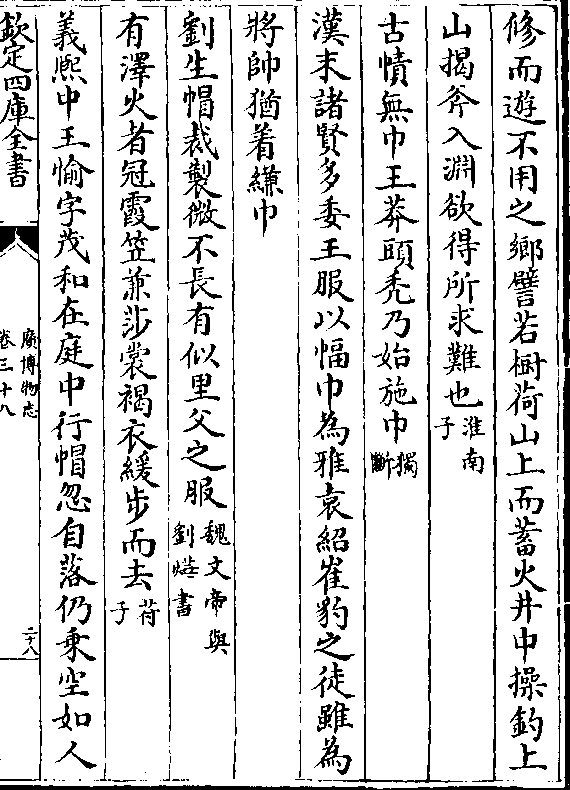 修而遊不用之鄉譬若樹荷山上而蓄火井中操釣上
山揭斧入淵欲得所求難也淮南子
古幘無巾王莽頭禿乃始施巾獨斷
漢末諸賢多委王服以幅巾為雅袁紹崔豹之徒雖為
將帥猶着縑巾
劉生帽裁製微不長有似里父之服魏文帝與劉燁書
有澤火者冠霞笠兼莎裳褐衣緩步而去苻子
義熈中王愉字茂和在庭中行帽忽自落仍乘空如人
欽定四庫全書
廣博物志
卷三十八
二十八